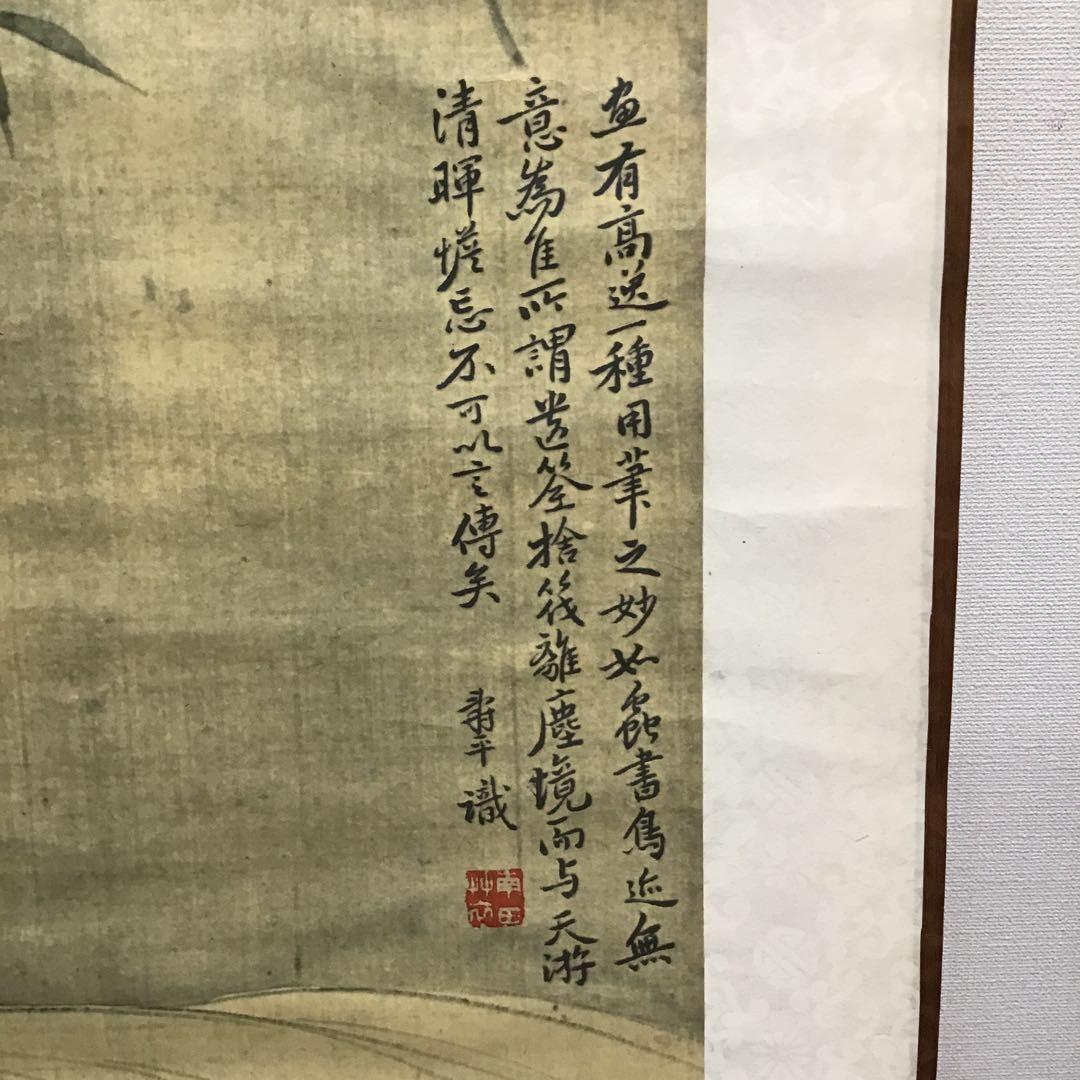 畫有高逸一種用筆之妙如蟲書鳥迹無
意為隹所謂遺筌捨筏離塵境而与天游
清暉憺忘不可以言傳矣
壽平識
南田艸衣